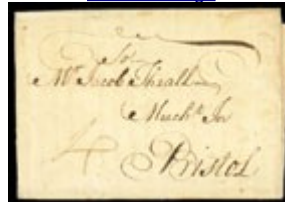 To
Mr. Jacob Thrall
Mercht. In
Bristol
4